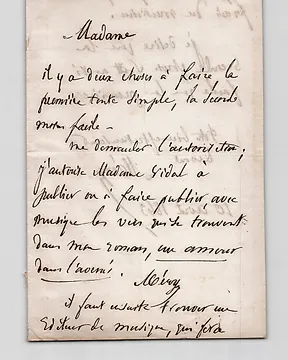 Madame
il y a deux choses à faire la
première toute simple, la seconde
moins facile –
me demander l'autorisation;
j'autorise Madame Vidal à
publier ou à faire publier, avec
musique les vers qui se trouvent
dans mon roman, un amour
dans l'avenir.
Méry
il faut ensuite trouver un
Editeur de musique, qui fera